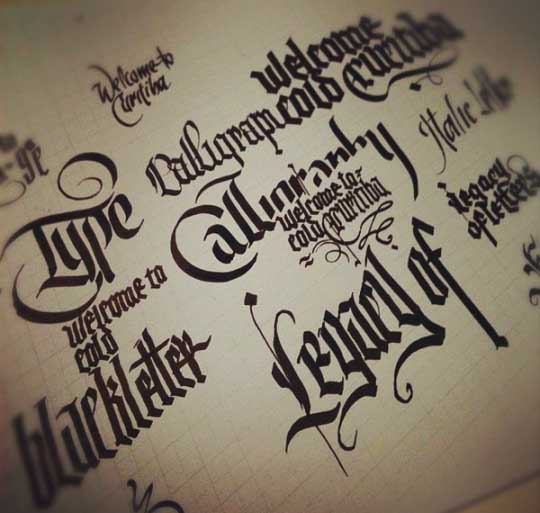 Welcome to
Curitiba
welcome
cold curitiba
Calligraphy
Italic
Type
Calligraphy
welcome to
cold curitiba
legacy
of letters
welcome to
cold
blackletter
Legacy of